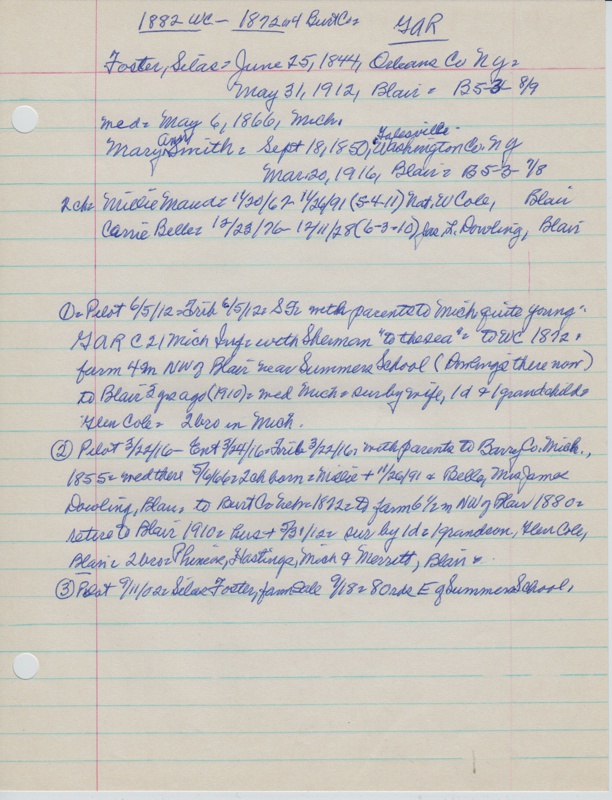 1882 WC - 1872 or 4 Burt Co = GAR
Foster, Silas = June 25, 1844, Orleans Co Ny =
May 31, 1912, Blair = B5-3- 8/9
med = May 6, 1866, Mich.
Mary Ann Smith = Sept 18, 1850, Galesville Washington Co. NY
Mar. 20, 1916, Blair = B5-3- 7/8
2 ch = Millie Maud = 11/30/67 - 11/26/91 (5-4-11) Nat. W Cole, Blair
Carrie Belle = 12/23/76 - 12/11/28 (6-3-10) Jas. L. Dowling, Blair
① = Pilot 6/5/12 = Trib 6/5/12 = SF = with parents to Mich quite young =
GAR C 21 Mich Inf = with Sherman "to the sea" = to WC 1872 =
farm 4 m NW of Blair near Summers School (Dowlings there now)
to Blair 2 yrs ago (1910) = med Mich = sur by wife, 1 d & 1 grandchild =
Glen Cole = 2 bro in Mich.
② Pilot 3/22/16 - Ent 3/24/16 = Trib 3/22/16 = with parents to Barry Co. Mich.,
1855 = med there 5/6/66 = 2 ch born = Millie + 11/26/91 & Belle, Mrs James
Dowling, Blair = to Burt Co Neb = 1872 = to farm 6 1/2 m NW of Blair 1880 =
retire to Blair 1910 = hus + 5/31/12 = sur by 1 d = 1 grandson, Glen Cole,
Blair = 2 bro = Hastings, Mich & Merrett, Blair =
③ Pilot 9/11/02 = Silas Foster, farm sale 9/18 = 80 rds E of Summers School,